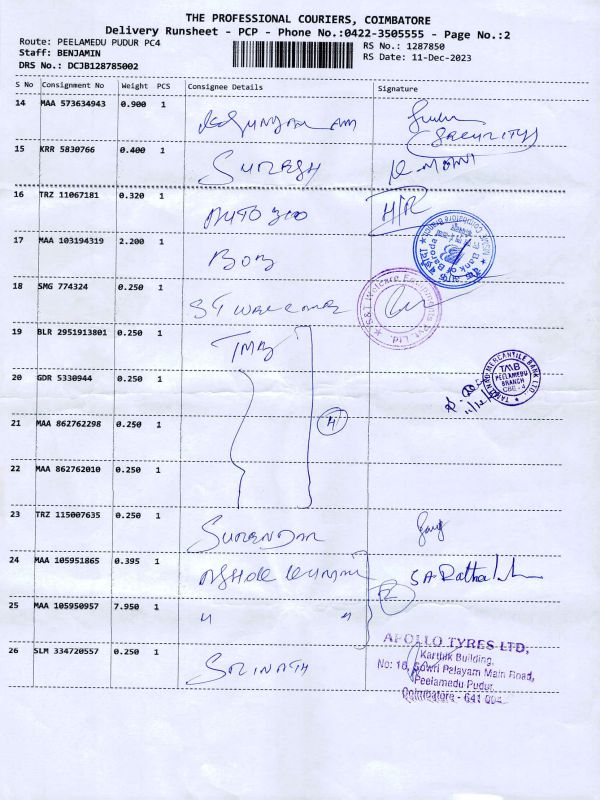 THE PROFESSIONAL COURIERS, COIMBATORE
Delivery Runsheet - PCP - Phone No.:0422-3505555 - Page No.:2
Route: PEELAMEDU PUDUR PC4
RS No.: 1287850
Staff: BENJAMIN
RS Date: 11-Dec-2023
DRS No.: DCJB128785002
S No Consignment No Weight PCS Consignee Details Signature
14 MAA 573634943 0.900 1
SECURITYS
15 KRR 5830766 0.400 1 SURESH K. MOHAN
16 TRZ 11067181 0.320 1 AUTO 300 H/R
17 MAA 103194319 2.200 1 BOB
Bank of Baroda
18 SMG 774324 0.250 1 ST WELCOME
S&T Welcare Equipments Pvt. Ltd.
19 BLR 2951913801 0.250 1 TMB
TAMILNAD MERCANTILE BANK LTD.
TMB
PEELAMEDU
BRANCH
CBE - 4
20 GDR 5330944 0.250 1
21 MAA 862762298 0.250 1 4
22 MAA 862762010 0.250 1
23 TRZ 115007635 0.250 1 SURENDAR
24 MAA 105951865 0.395 1 ASHOK KUMAR 2
25 MAA 105950957 7.950 1 " "
26 SLM 334720557 0.250 1 SRINATH
APOLLO TYRES LTD,
Karthik Building,
No: 16, Gowri Palayam Main Road,
Peelamedu Pudur,
Coimbatore - 641 004.